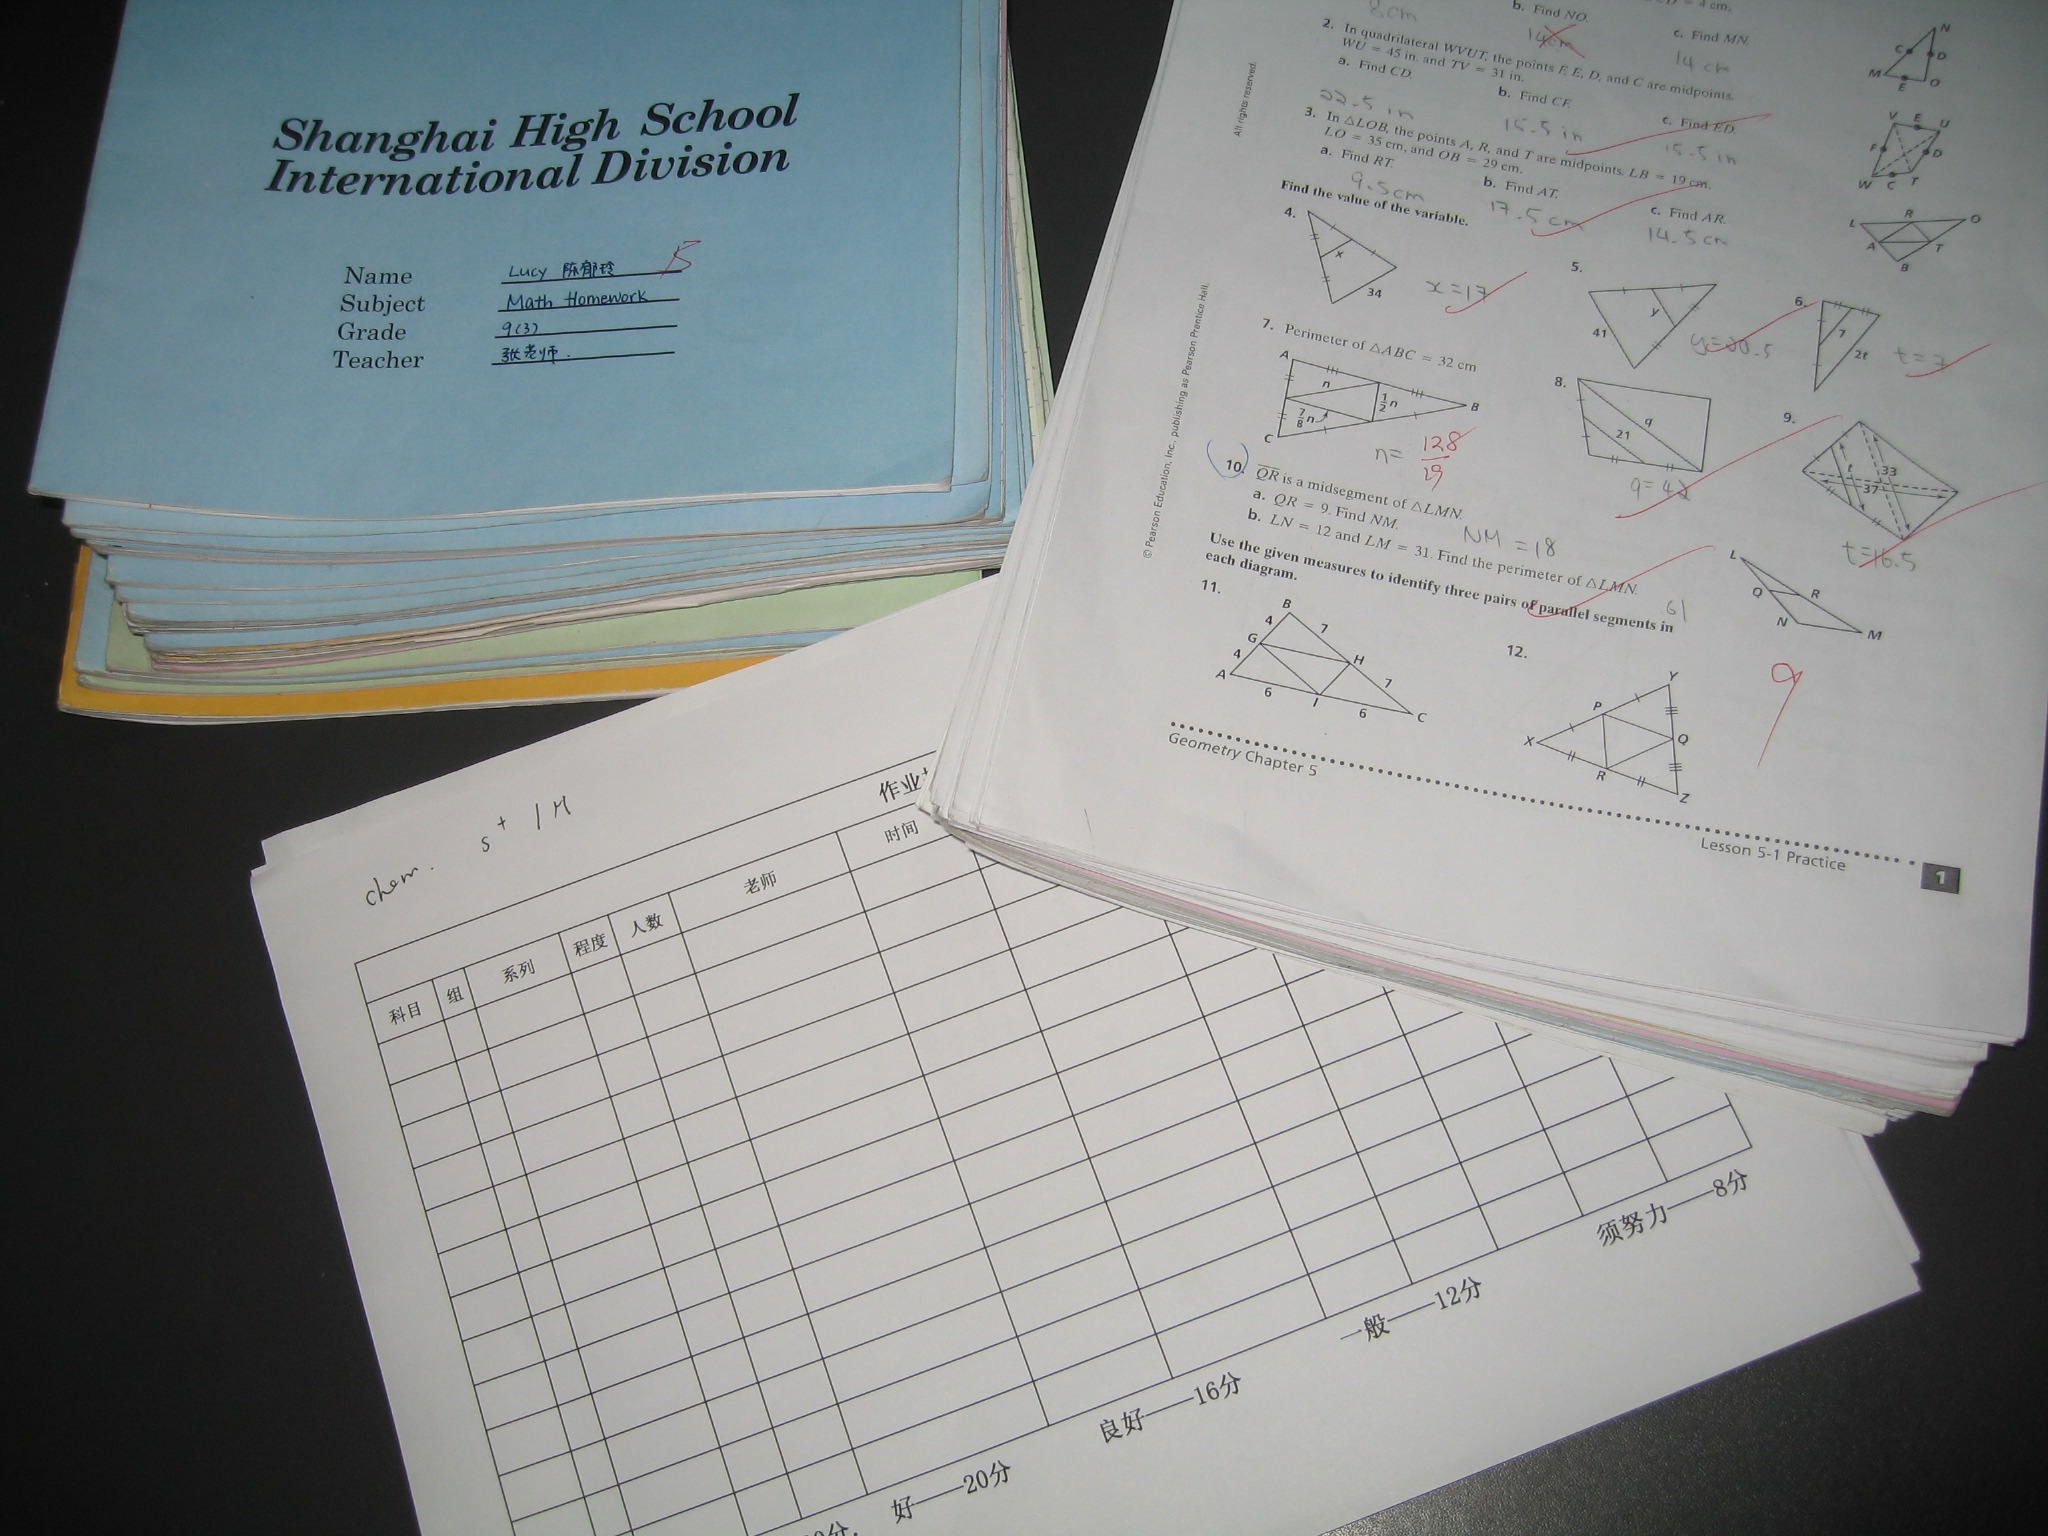 Shanghai High School
International Division
Name Lucy 陈郁玲
Subject Math Homework
Grade 9(3)
Teacher 张老师.
5
4 cm.
8cm
b. Find NO.
14cm
c. Find MN.
14 cm
2. In quadrilateral WVUT, the points F, E, D, and C are midpoints.
WU = 45 in. and TV = 31 in.
a. Find CD.
b. Find CF.
c. Find ED.
22.5 in
15.5 in
15.5 in
3. In △LOB, the points A, R, and T are midpoints. LB = 19 cm,
LO = 35 cm, and OB = 29 cm.
a. Find RT.
b. Find AT.
c. Find AR.
9.5cm
17.5 cm
14.5cm
Find the value of the variable.
4.
x
34
x=17
5.
41
y
6.
7
2t
7. Perimeter of △ABC = 32 cm
A
B
C
n
1/2 n
7/8 n
n= 128/19
8.
q
21
9.
33
37
t
t=16.5
10. QR is a midsegment of △LMN.
a. QR = 9. Find NM.
NM = 18
b. LN = 12 and LM = 31. Find the perimeter of △LMN.
61
Use the given measures to identify three pairs of parallel segments in
each diagram.
11.
B
4 7
G
4 H
A 7
6 I 6 C
12.
Y
P
X Q
R
Z
9
N
C D
M E O
V E U
F D
W C T
L R O
A T
B
L
Q R
N M
Geometry Chapter 5
Lesson 5-1 Practice 1
All rights reserved.
© Pearson Education, Inc., publishing as Pearson Prentice Hall.
chem. s+ 1M
作业
科目 组 系列 程度 人数 老师 时间
好——20分 良好——16分 一般——12分 须努力——8分